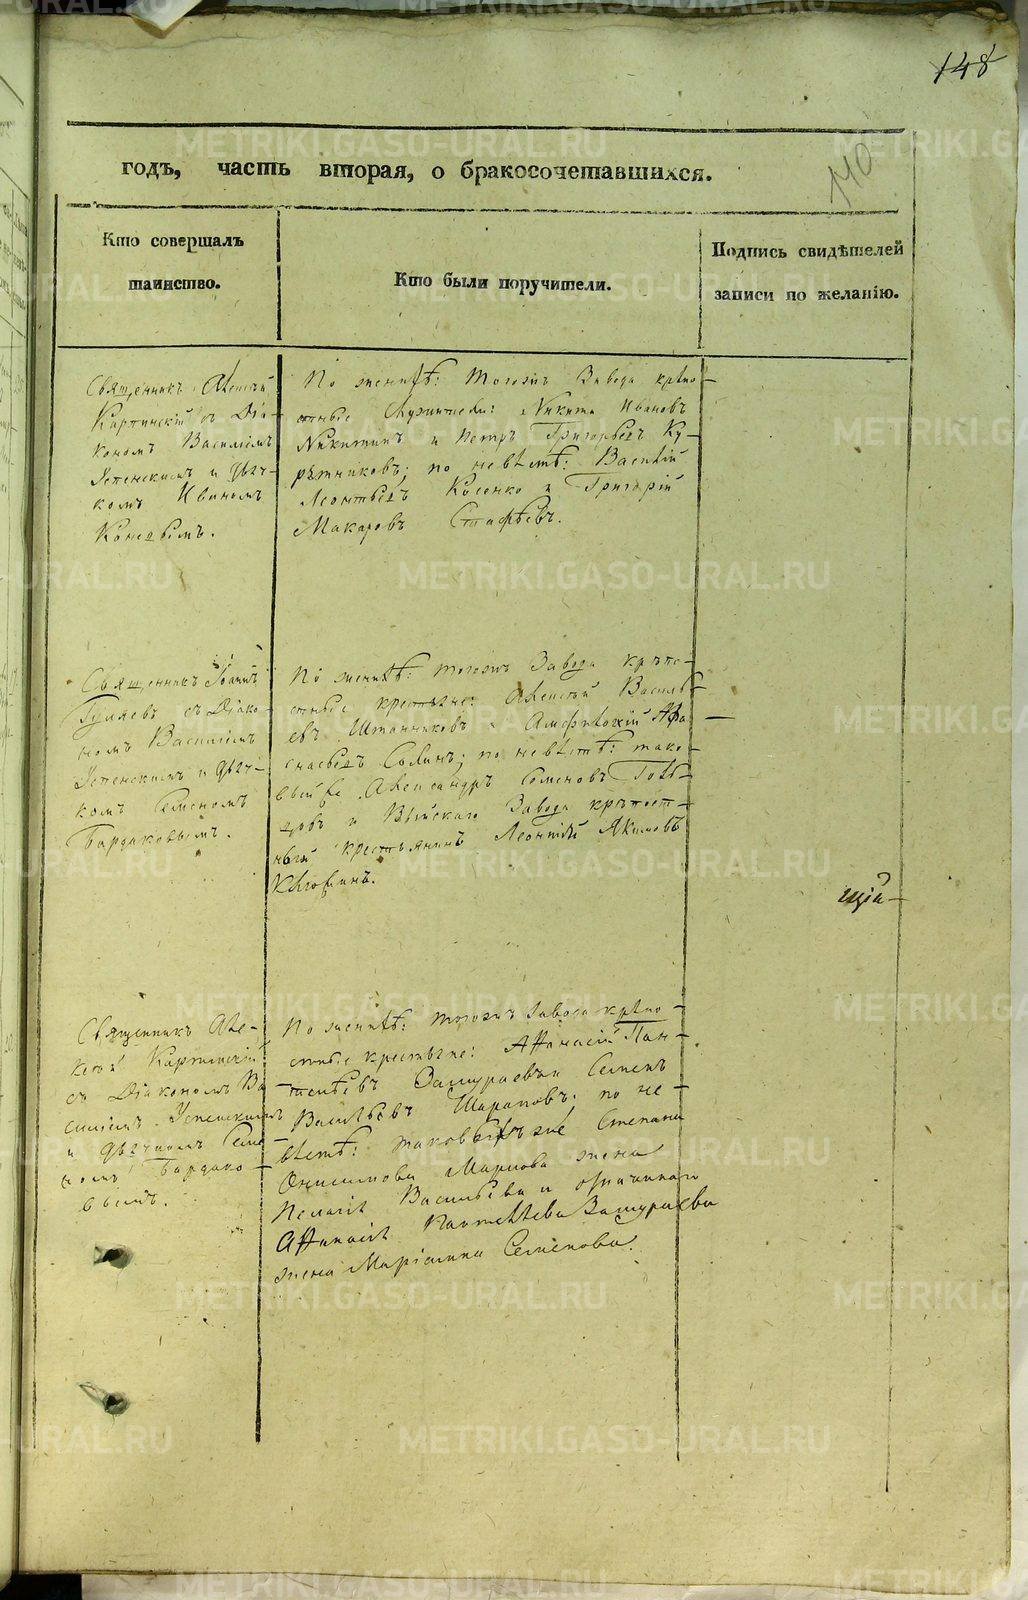 148
140
годъ, часть вторая, о бракосочетавшихся.
Кто совершалъ
таинство.
Кто были поручители.
Подпись свидѣтелей
записи по желанію.
Священникъ Алексѣй
Карпинскій съ Діа-
кономъ Василіемъ
Успенскимъ и Дьяч-
комъ Иваномъ
По женихѣ: тогожъ Завода крѣпо-
стные служители: Никита Ивановъ
Никитинъ и Петръ Григорьевъ Ку-
; по невѣстѣ: Василій
Леонтьевъ Косенко и Григорій
Макаровъ
Священникъ Іоаннъ
съ Діако-
номъ Василіемъ
Успенскимъ и Дьяч-
комъ Семеномъ
Бардаковымъ.
По женихѣ: тогожъ Завода крѣпо-
стные крестьяне: Алексѣй Василь-
евъ и Амфилохій Афа-
насьевъ ; по невѣстѣ: тако-
выеже Александръ Семеновъ
и Выйскаго Завода крѣпост-
ный крестьянинъ Леонтій Якимовъ
щій
Священникъ Але-
ксѣй Карпинскій
съ Діакономъ Ва-
силіемъ Успенскимъ
и Дьячкомъ Семе-
номъ Бардако-
вымъ.
По женихѣ: тогожъ Завода крѣпо-
стные крестьяне: Афанасій Пан-
телѣевъ Замураевъ и Семенъ
Васильевъ Шараповъ; по не-
вѣстѣ: таковыхъ же Степана
Онисимова жена
Пелагія Васильева и означеннаго
Афанасія Пантелѣева Замураева
жена Маріамна Семенова.
METRIKI.GASO-URAL.RU